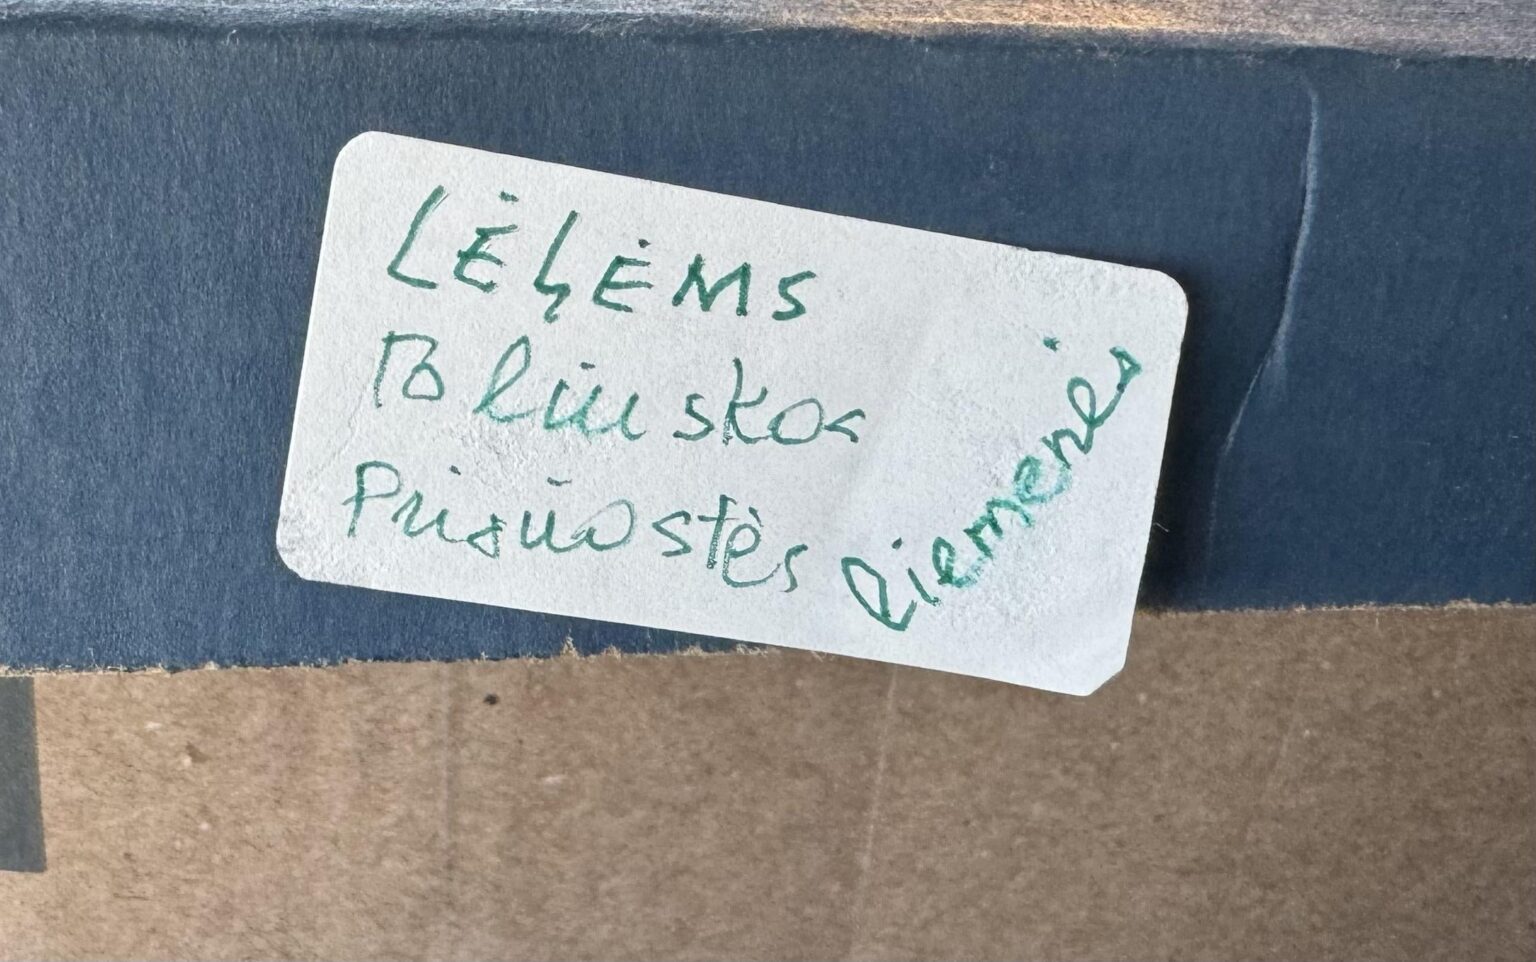 LĖLĖMS
Baliuskos
Prisiuostės
liemenės